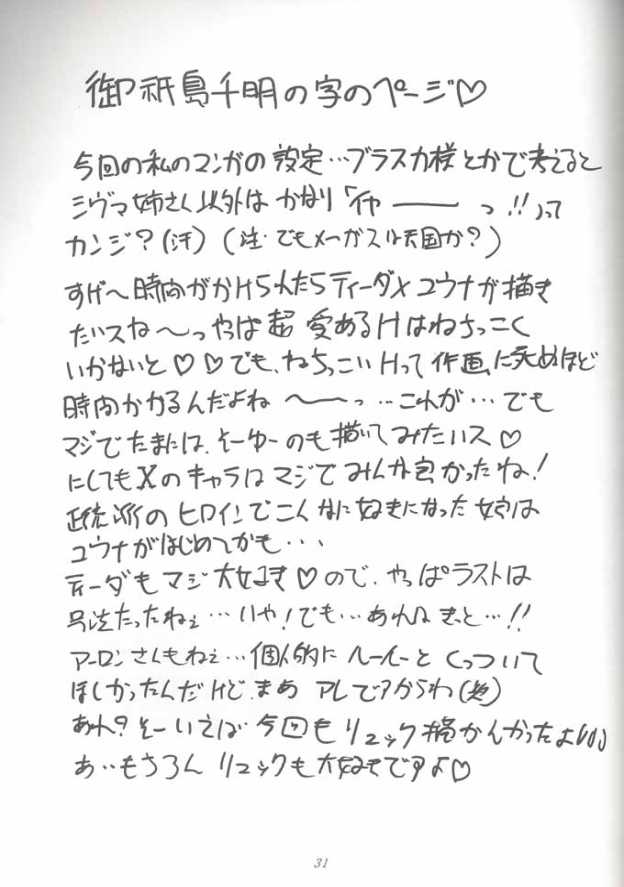 御祇島千明の字のページ♡
今回の私のマンガの設定…ブラスカ様とかで考えると
シヴァ姉さん以外は かなり「イヤーーっ!!」って
カンジ？(汗) (注・でもメーガスは天国か？)
すげ〜時間がかけられたらティーダ×ユウナが描き
たいスね〜っ やっぱ超 愛あるHはねちっこく
いかないと♡♡でも、ねちっこいHって作画に死ぬほど
時間かかるんだよね 〜ーっ…これが…でも
マジでたまには、そーゆーのも描いてみたいス♡
にしてもXのキャラはマジでみんな良かったね！
正統派のヒロインでこんなに好きになった娘は
ユウナがはじめてかも・・・
ティーダもマジ大好き♡ので、やっぱラストは
号泣だったねェ…いや！でも…あれはきっと…!!
アーロンさんもねェ…個人的にルールーとくっついて
ほしかったんだけど、まあ アレですからね
あれ？そーいえば 今回もリュック描かんかったよ
あ…もちろん リュックも大好きですよ♡
31